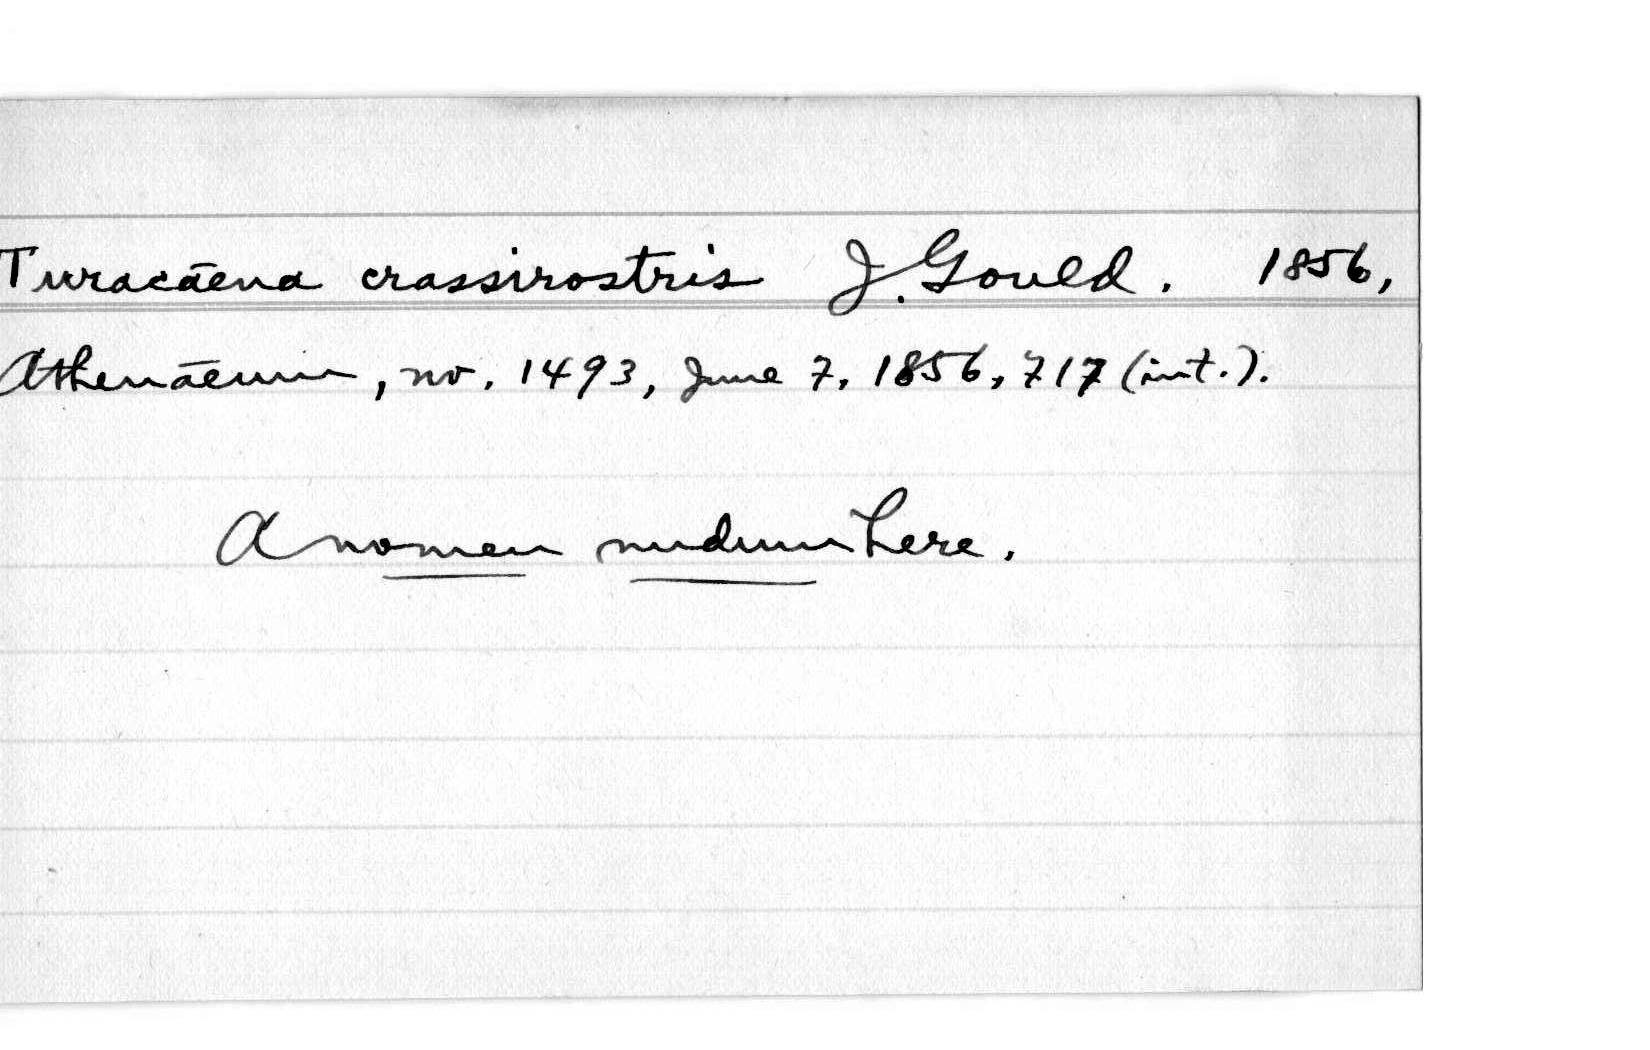 Turacāena crassirostris J. Gould. 1856,
Athenāeum, no. 1493, June 7, 1856, 717 (int.).
A nomen nudum here.